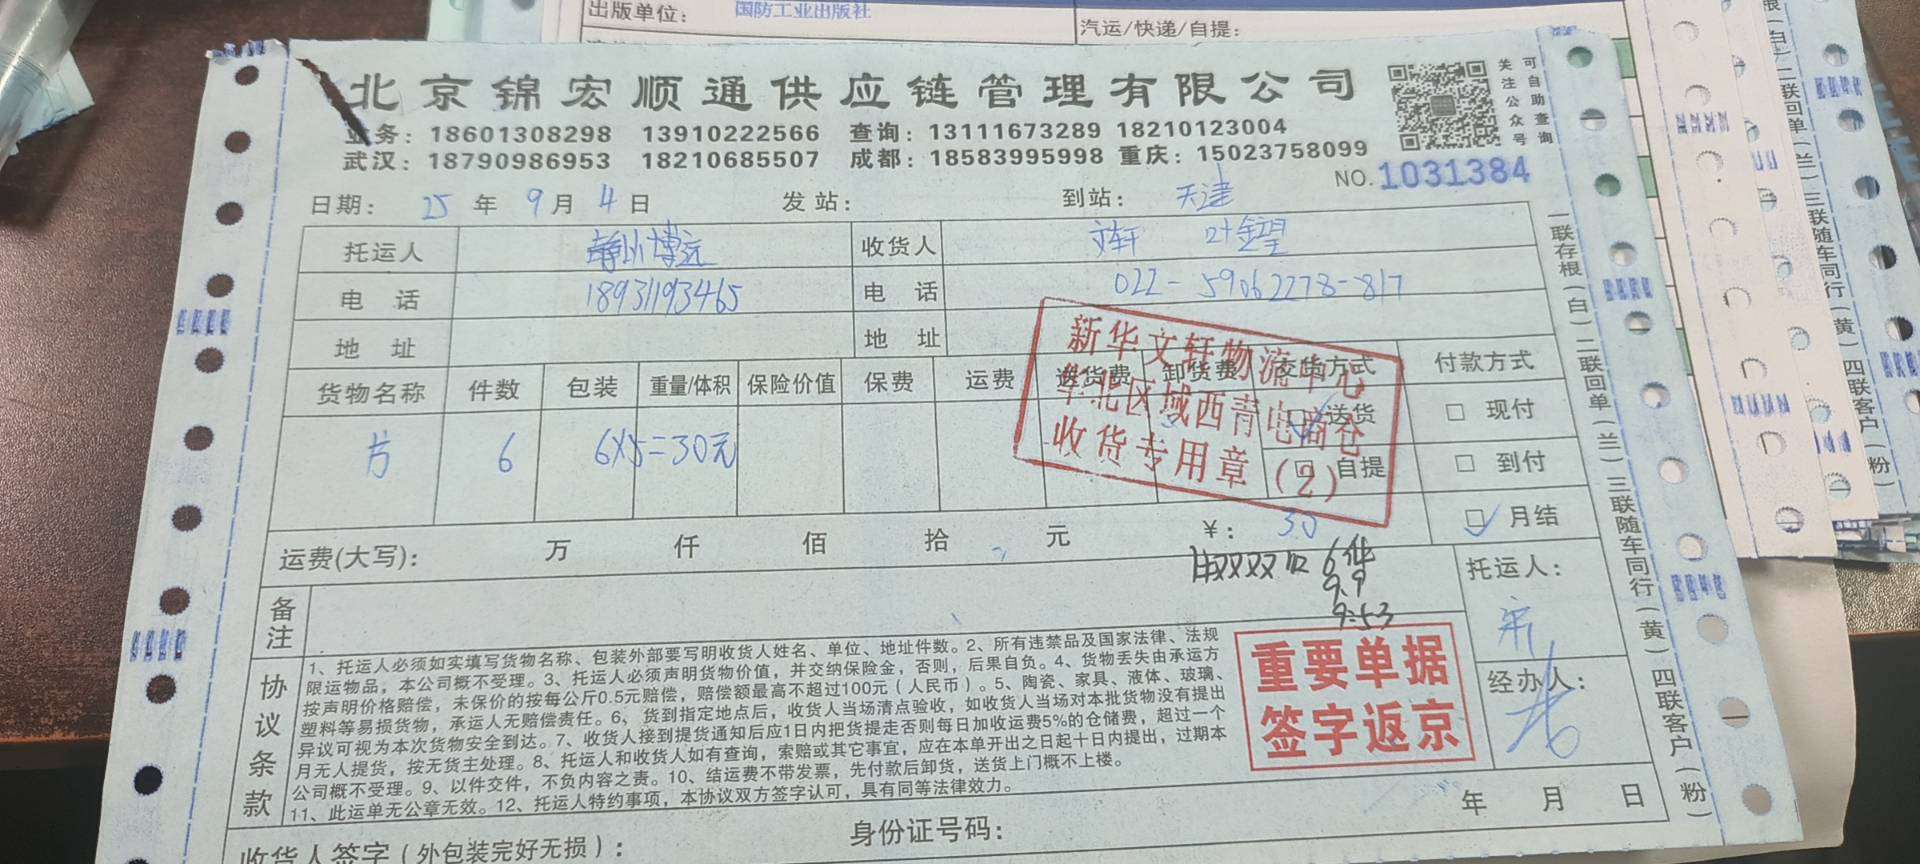 出版单位：
国防工业出版社
汽运/快递/自提：
北京锦宏顺通供应链管理有限公司
可自助查询
关注公众号
业务：18601308298 13910222566 查询：13111673289 18210123004
武汉：18790986953 18210685507 成都：18583995998 重庆：15023758099
NO.1031384
日期： 25 年 9 月 4 日 发站： 到站： 天津
托运人 博远 收货人 文轩 叶望
电话 18931193465 电话 022-59062278-817
地址 地址
新华文轩物流中心
华北区域西青电商仓
收货专用章
(2)
货物名称 件数 包装 重量/体积 保险价值 保费 运费 送货费 卸货费 交货方式 付款方式
书 6 6×5=30元
□ 送货 □ 现付
□ 自提 □ 到付
□ 月结
运费(大写)： 万 仟 佰 拾 元 ￥： 30
6件
9.9
9:53
备注
托运人：
经办人：
协议条款
1、托运人必须如实填写货物名称、包装外部要写明收货人姓名、单位、地址件数。2、所有违禁品及国家法律、法规
限运物品，本公司概不受理。3、托运人必须声明货物价值，并交纳保险金，否则，后果自负。4、货物丢失由承运方
按声明价格赔偿，未保价的按每公斤0.5元赔偿，赔偿额最高不超过100元（人民币）。5、陶瓷、家具、液体、玻璃、
塑料等易损货物，承运人无赔偿责任。6、货到指定地点后，收货人当场清点验收，如收货人当场对本批货物没有提出
异议可视为本次货物安全到达。7、收货人接到提货通知后应1日内把货提走否则每日加收运费5%的仓储费，超过一个
月无人提货，按无货主处理。8、托运人和收货人如有查询，索赔或其它事宜，应在本单开出之日起十日内提出，过期本
公司概不受理。9、以件交件，不负内容之责。10、结运费不带发票，先付款后卸货，送货上门概不上楼。
11、此运单无公章无效。12、托运人特约事项，本协议双方签字认可，具有同等法律效力。
重要单据
签字返京
年 月 日
收货人签字（外包装完好无损）： 身份证号码：
一联存根（白）二联回单（兰）三联随车同行（黄）四联客户（粉）